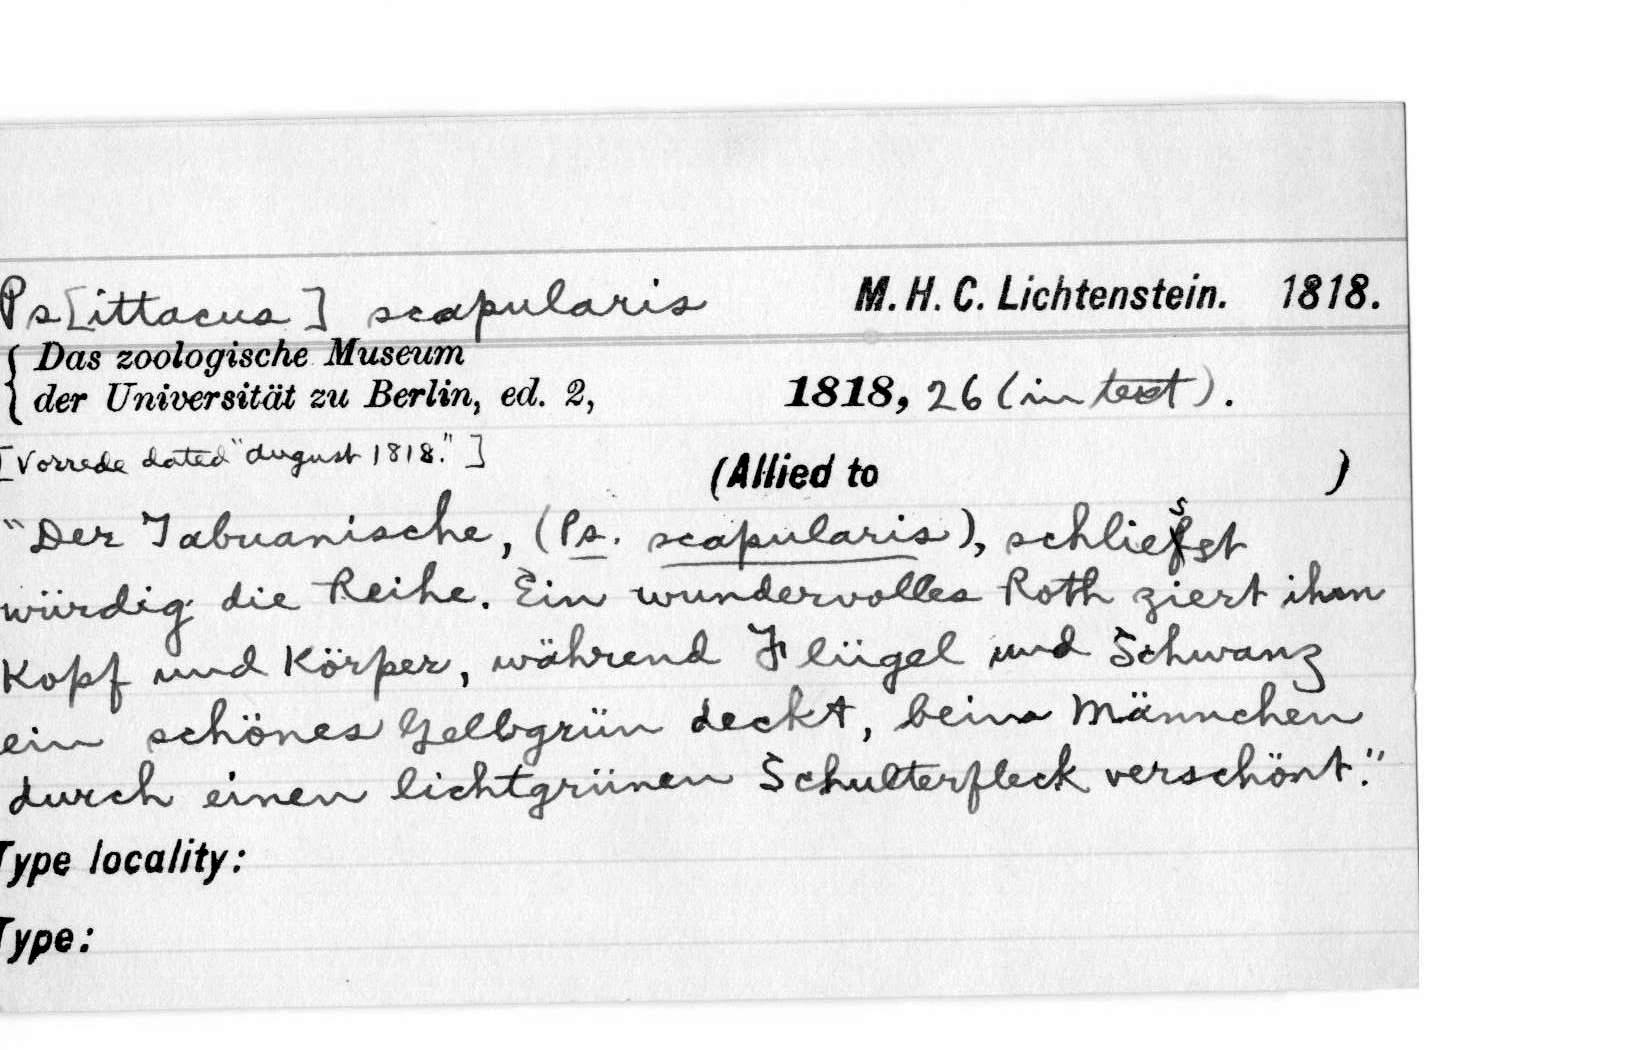 Ps[ittacus] scapularis M. H. C. Lichtenstein. 1818.
{ Das zoologische Museum
der Universität zu Berlin, ed. 2, 1818, 26 (in text).
[Vorrede dated "August 1818."]
(Allied to )
"Der Tabuanische, (Ps. scapularis), schliesst
würdig die Reihe. Ein wundervolles Roth ziert ihm
Kopf und Körper, während Flügel und Schwanz
ein schönes Gelbgrün deckt, beim Männchen
durch einen lichtgrünen Schulterfleck verschönt."
Type locality:
Type: